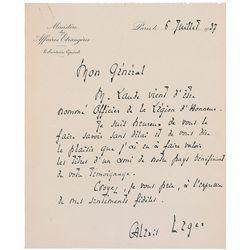 Ministère
des
Affaires Étrangères
Secrétariat Général
Paris le 6 Juillet 1937
Mon Général
M. Laude vient d'être
nommé Officier de la Légion d'Honneur.
Je suis heureux de vous le
faire savoir sans délai et de vous dire
le plaisir que j'ai eu à faire valoir
les titres d'un ami de notre pays bénéficiant
de votre témoignage.
Croyez, je vous prie, à l'expression
de mes sentiments fidèles.
Alexis Leger